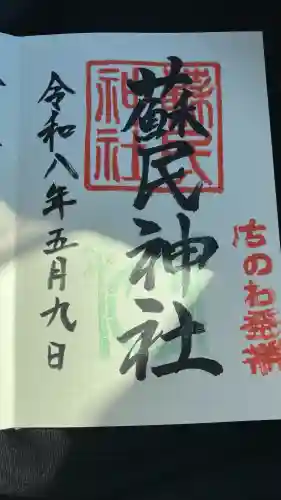 ちのわ発祥
蘇民神社
蘇民
神社
令和八年五月九日